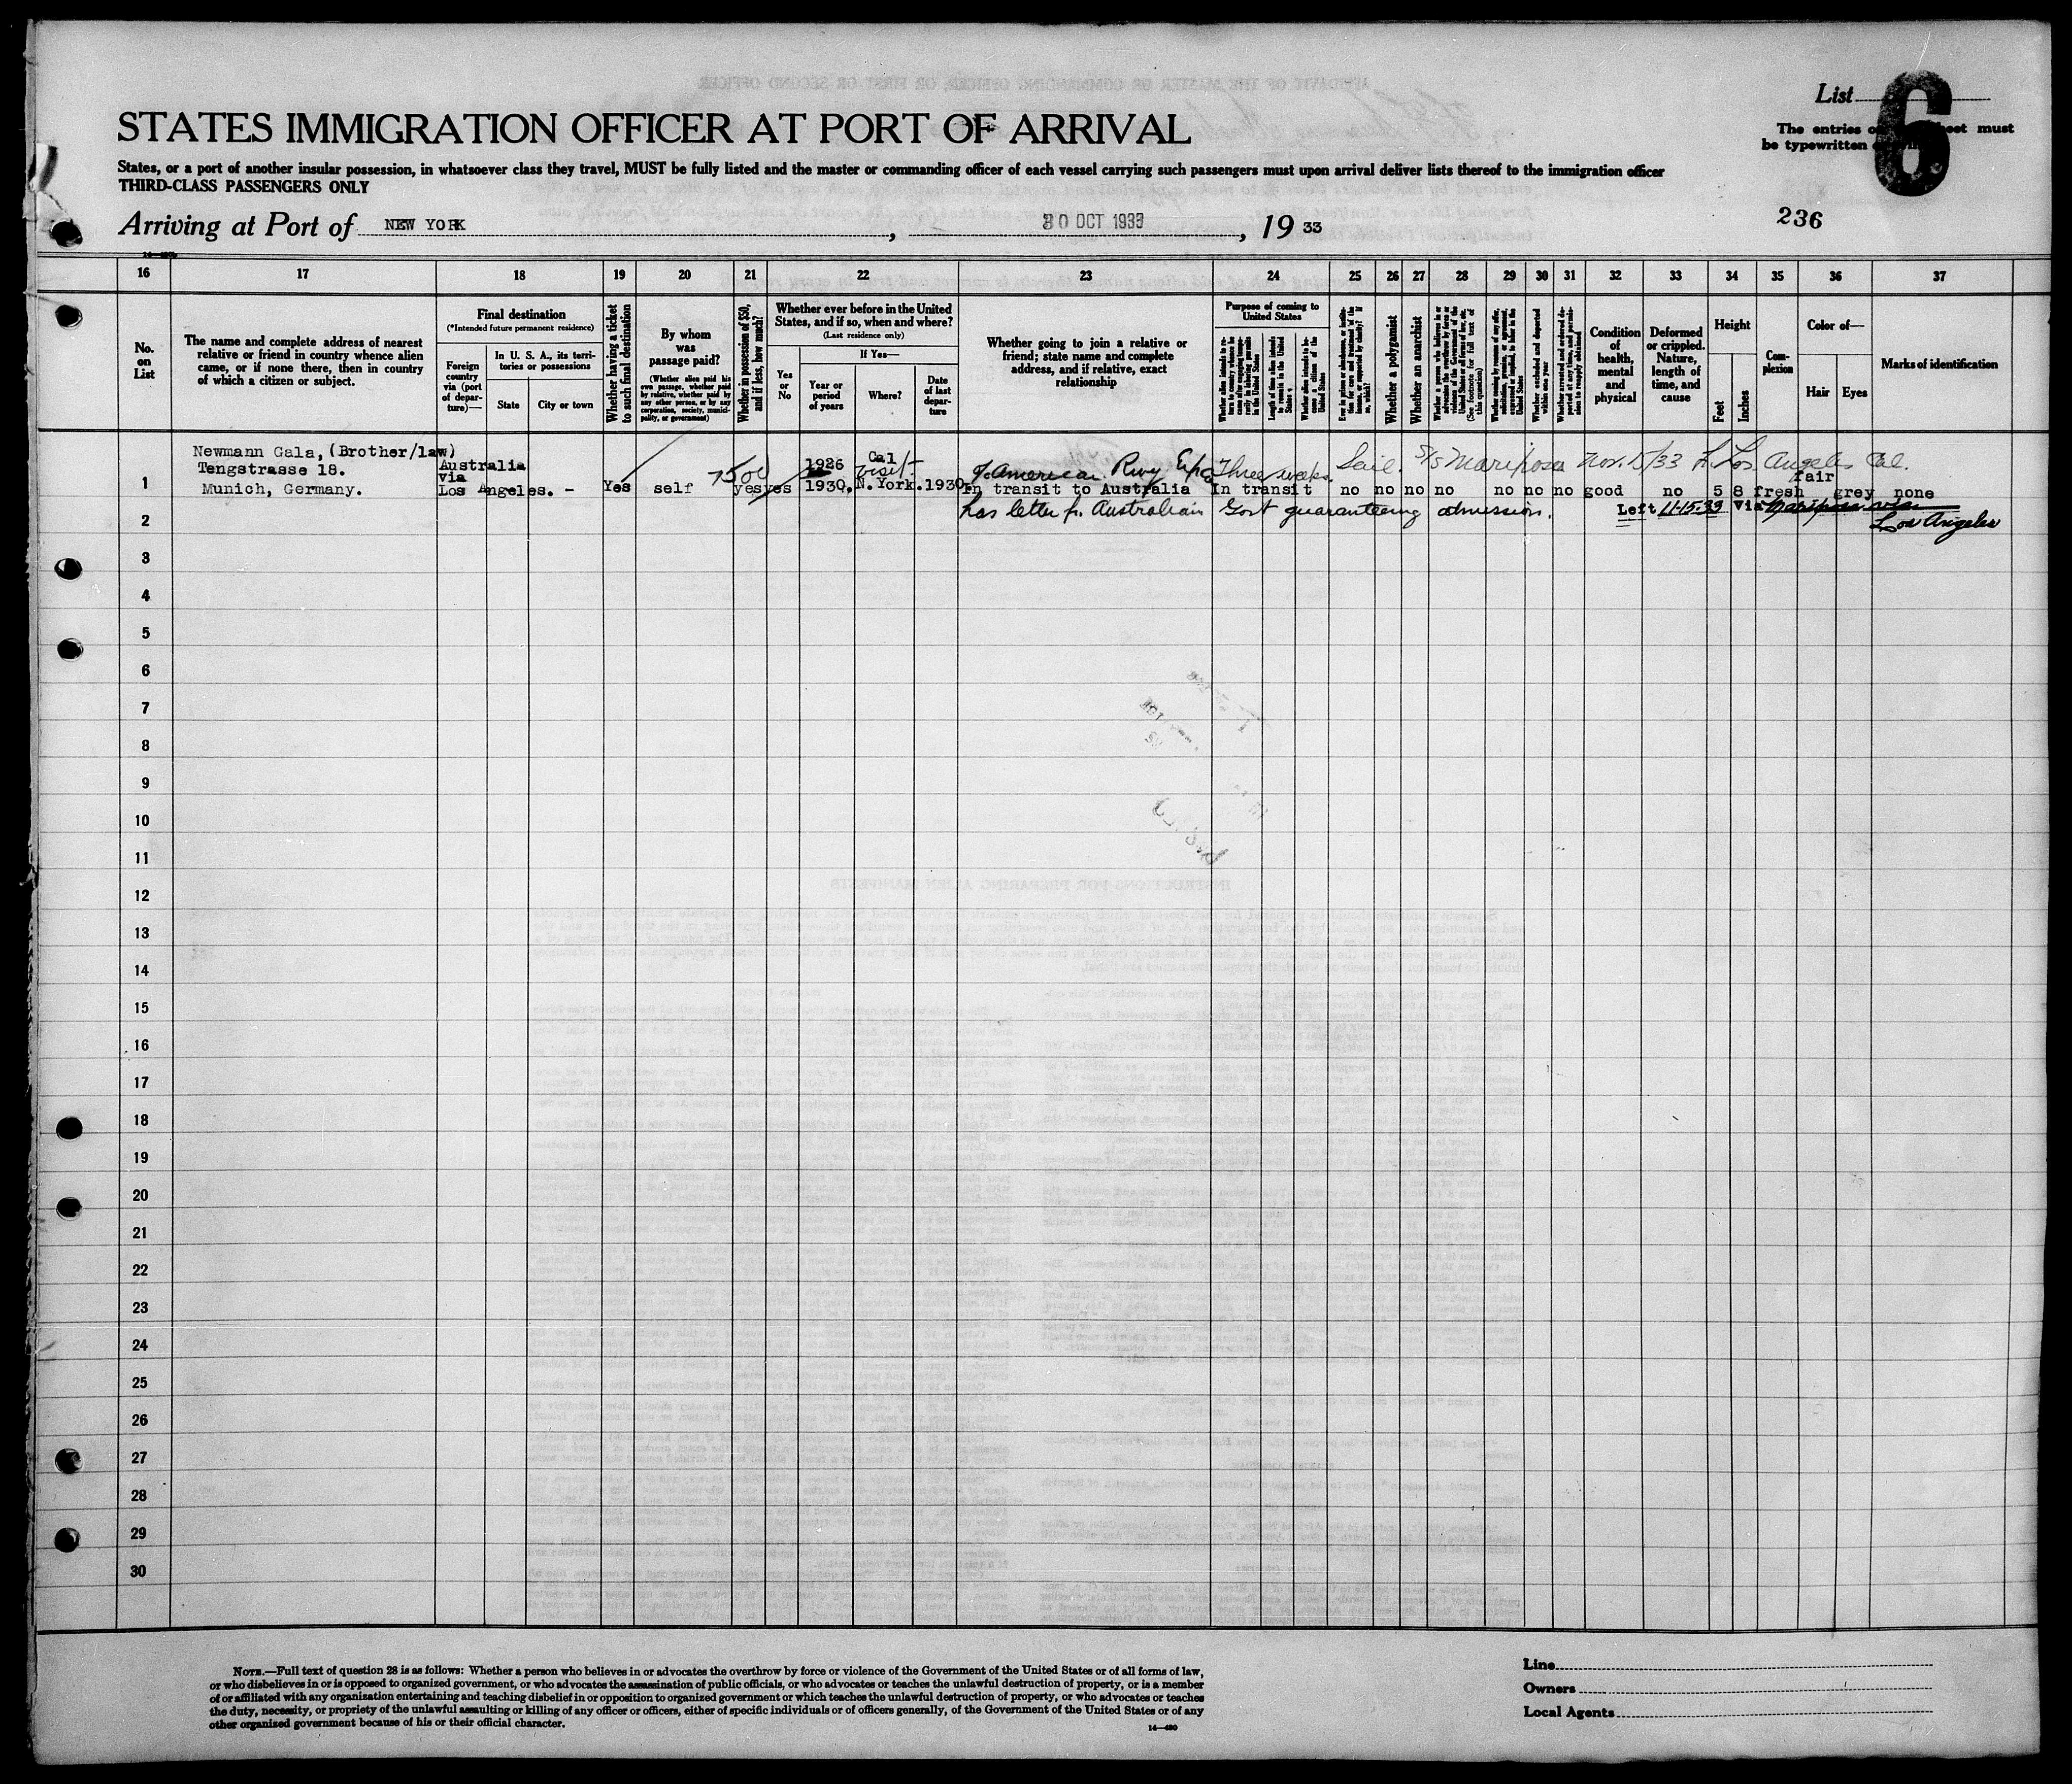 List 6
The entries on this sheet must
be typewritten or printed
STATES IMMIGRATION OFFICER AT PORT OF ARRIVAL
States, or a port of another insular possession, in whatsoever class they travel, MUST be fully listed and the master or commanding officer of each vessel carrying such passengers must upon arrival deliver lists thereof to the immigration officer
THIRD-CLASS PASSENGERS ONLY
Arriving at Port of NEW YORK, 30 OCT 1933, 19 33
236
16 17 18 19 20 21 22 23 24 25 26 27 28 29 30 31 32 33 34 35 36 37
No. on List
The name and complete address of nearest
relative or friend in country whence alien
came, or if none there, then in country
of which a citizen or subject.
Final destination
(*Intended future permanent residence)
Foreign country via (port of departure)—
In U. S. A., its territories or possessions
State
City or town
Whether having a ticket to such final destination
By whom was passage paid?
(Whether alien paid his own passage, whether paid by relative, whether paid by any other person, or by any corporation, society, municipality, or government)
Whether in possession of $50, and if less, how much?
Whether ever before in the United States, and if so, when and where?
(Last residence only)
Yes or No
If Yes—
Year or period of years
Where?
Date of last departure
Whether going to join a relative or
friend; state name and complete
address, and if relative, exact
relationship
Purpose of coming to United States
Length of time alien intends to remain in the United States
Whether a polygamist
Whether an anarchist
(See footnote for full text of this question)
Whether excluded and deported within one year
Condition of health, mental and physical
Deformed or crippled. Nature, length of time, and cause
Height
Feet
Inches
Complexion
Color of—
Hair
Eyes
Marks of identification
Newmann Gala, (Brother/law)
Tengstrasse 18.
Munich, Germany.
Australia
via
Los Angeles. -
Yes
self
7500
yes
yes
1926
1930.
Cal
visit.
N. York.
1930.
c/o American Rwy Exp Co
In transit to Australia
has letter fr. Australian Govt guaranteeing admission.
Three weeks.
In transit
Sail. S/S Mariposa Nov. 15/33 fr. Los Angeles Cal.
no no no no no no no good no 5 8 fresh fair grey none
Left 11-15-33 Via Mariposa via
Los Angeles
1
2
3
4
5
6
7
8
9
10
11
12
13
14
15
16
17
18
19
20
21
22
23
24
25
26
27
28
29
30
NOTE.—Full text of question 28 is as follows: Whether a person who believes in or advocates the overthrow by force or violence of the Government of the United States or of all forms of law,
or who disbelieves in or is opposed to organized government, or who advocates the assassination of public officials, or who advocates or teaches the unlawful destruction of property, or is a member
of or affiliated with any organization entertaining and teaching disbelief in or opposition to organized government or which teaches the unlawful destruction of property, or who advocates or teaches
the duty, necessity, or propriety of the unlawful assaulting or killing of any officer or officers, either of specific individuals or of officers generally, of the Government of the United States or of any
other organized government because of his or their official character.
14—480
Line
Owners
Local Agents